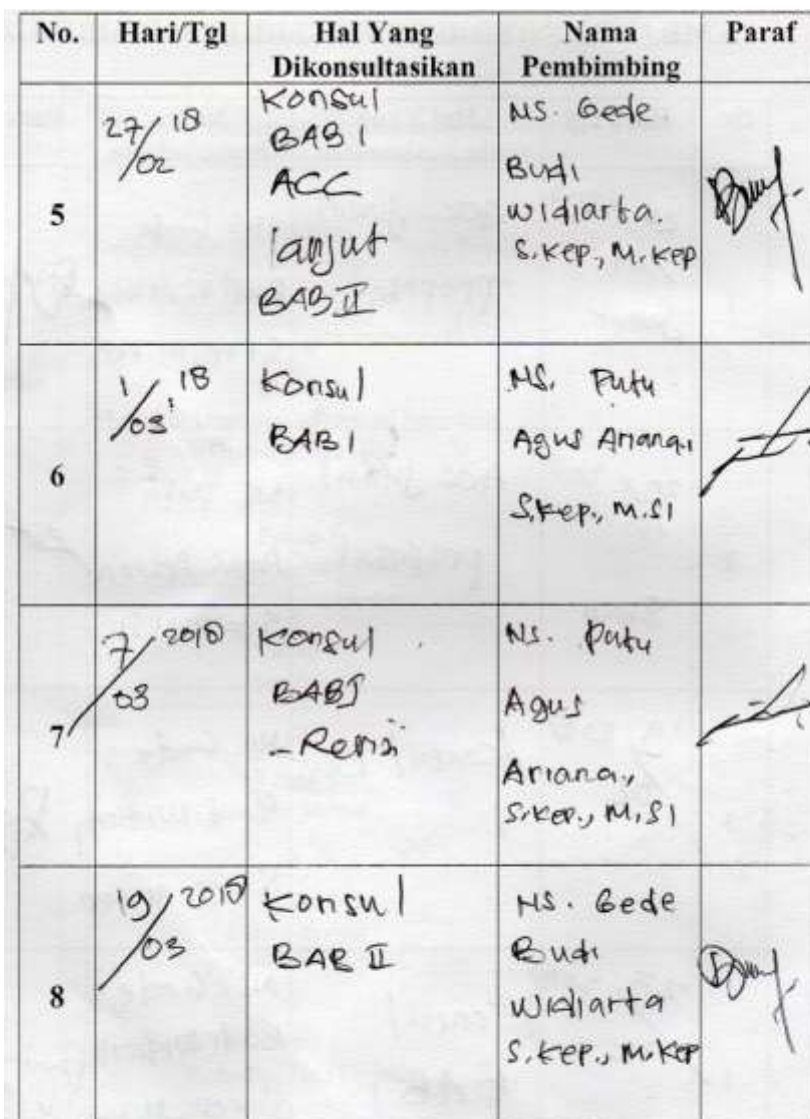 No. Hari/Tgl Hal Yang Dikonsultasikan Nama Pembimbing Paraf
5
27/02 18
Konsul
BAB I
ACC
lanjut
BAB II
NS. Gede
Budi
Widiarta.
S.Kep., M.Kep
6
1/03 18
Konsul
BAB I
NS. Putu
Agus Ariana,
S.Kep., M.SI
7
7/03 2018
Konsul
BAB I
- Revisi
NS. Putu
Agus
Ariana.,
S.Kep., M.SI
8
19/03 2018
Konsul
BAB II
NS. Gede
Budi
Widiarta
S.Kep., M.Kep